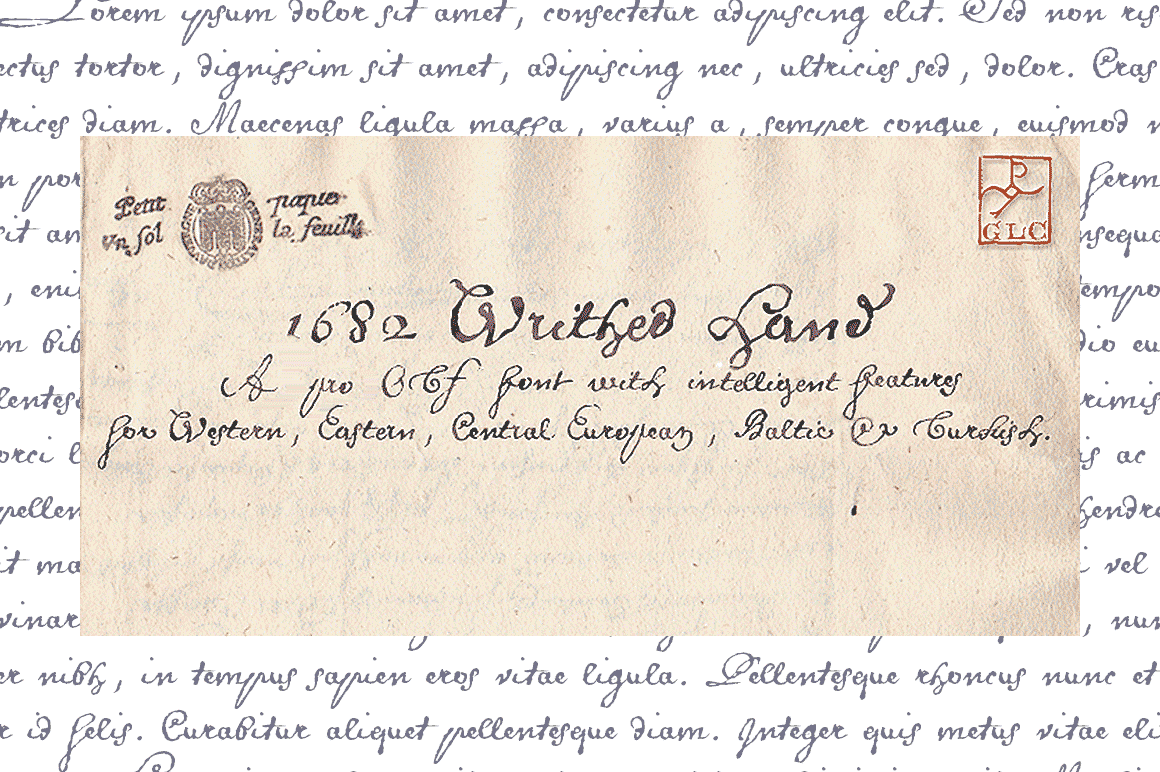 orem ipsum dolor sit amet, consectetur adipiscing elit. Sed non ris
ectus tortor, dignissim sit amet, adipiscing nec, ultricies sed, dolor. Cras
trices diam. Maecenas ligula massa, varius a, semper congue, euismod n
n por
herm
Petit papier
Un sol la feuille
GENERALITE D'AUVERGNE
GLC
sit am
nsequa
, eni
empo
1682 Writhed Hand
m bib
dio eu
A pro OTF font with intelligent features
lentes
rimis
for Western, Eastern, Central European, Baltic & Turkish.
orci l
is ac
pellen
hendre
it ma
i vel
vinar
, nun
er nibh, in tempus sapien eros vitae ligula. Pellentesque rhoncus nunc et
r id felis. Curabitur aliquet pellentesque diam. Integer quis metus vitae eli